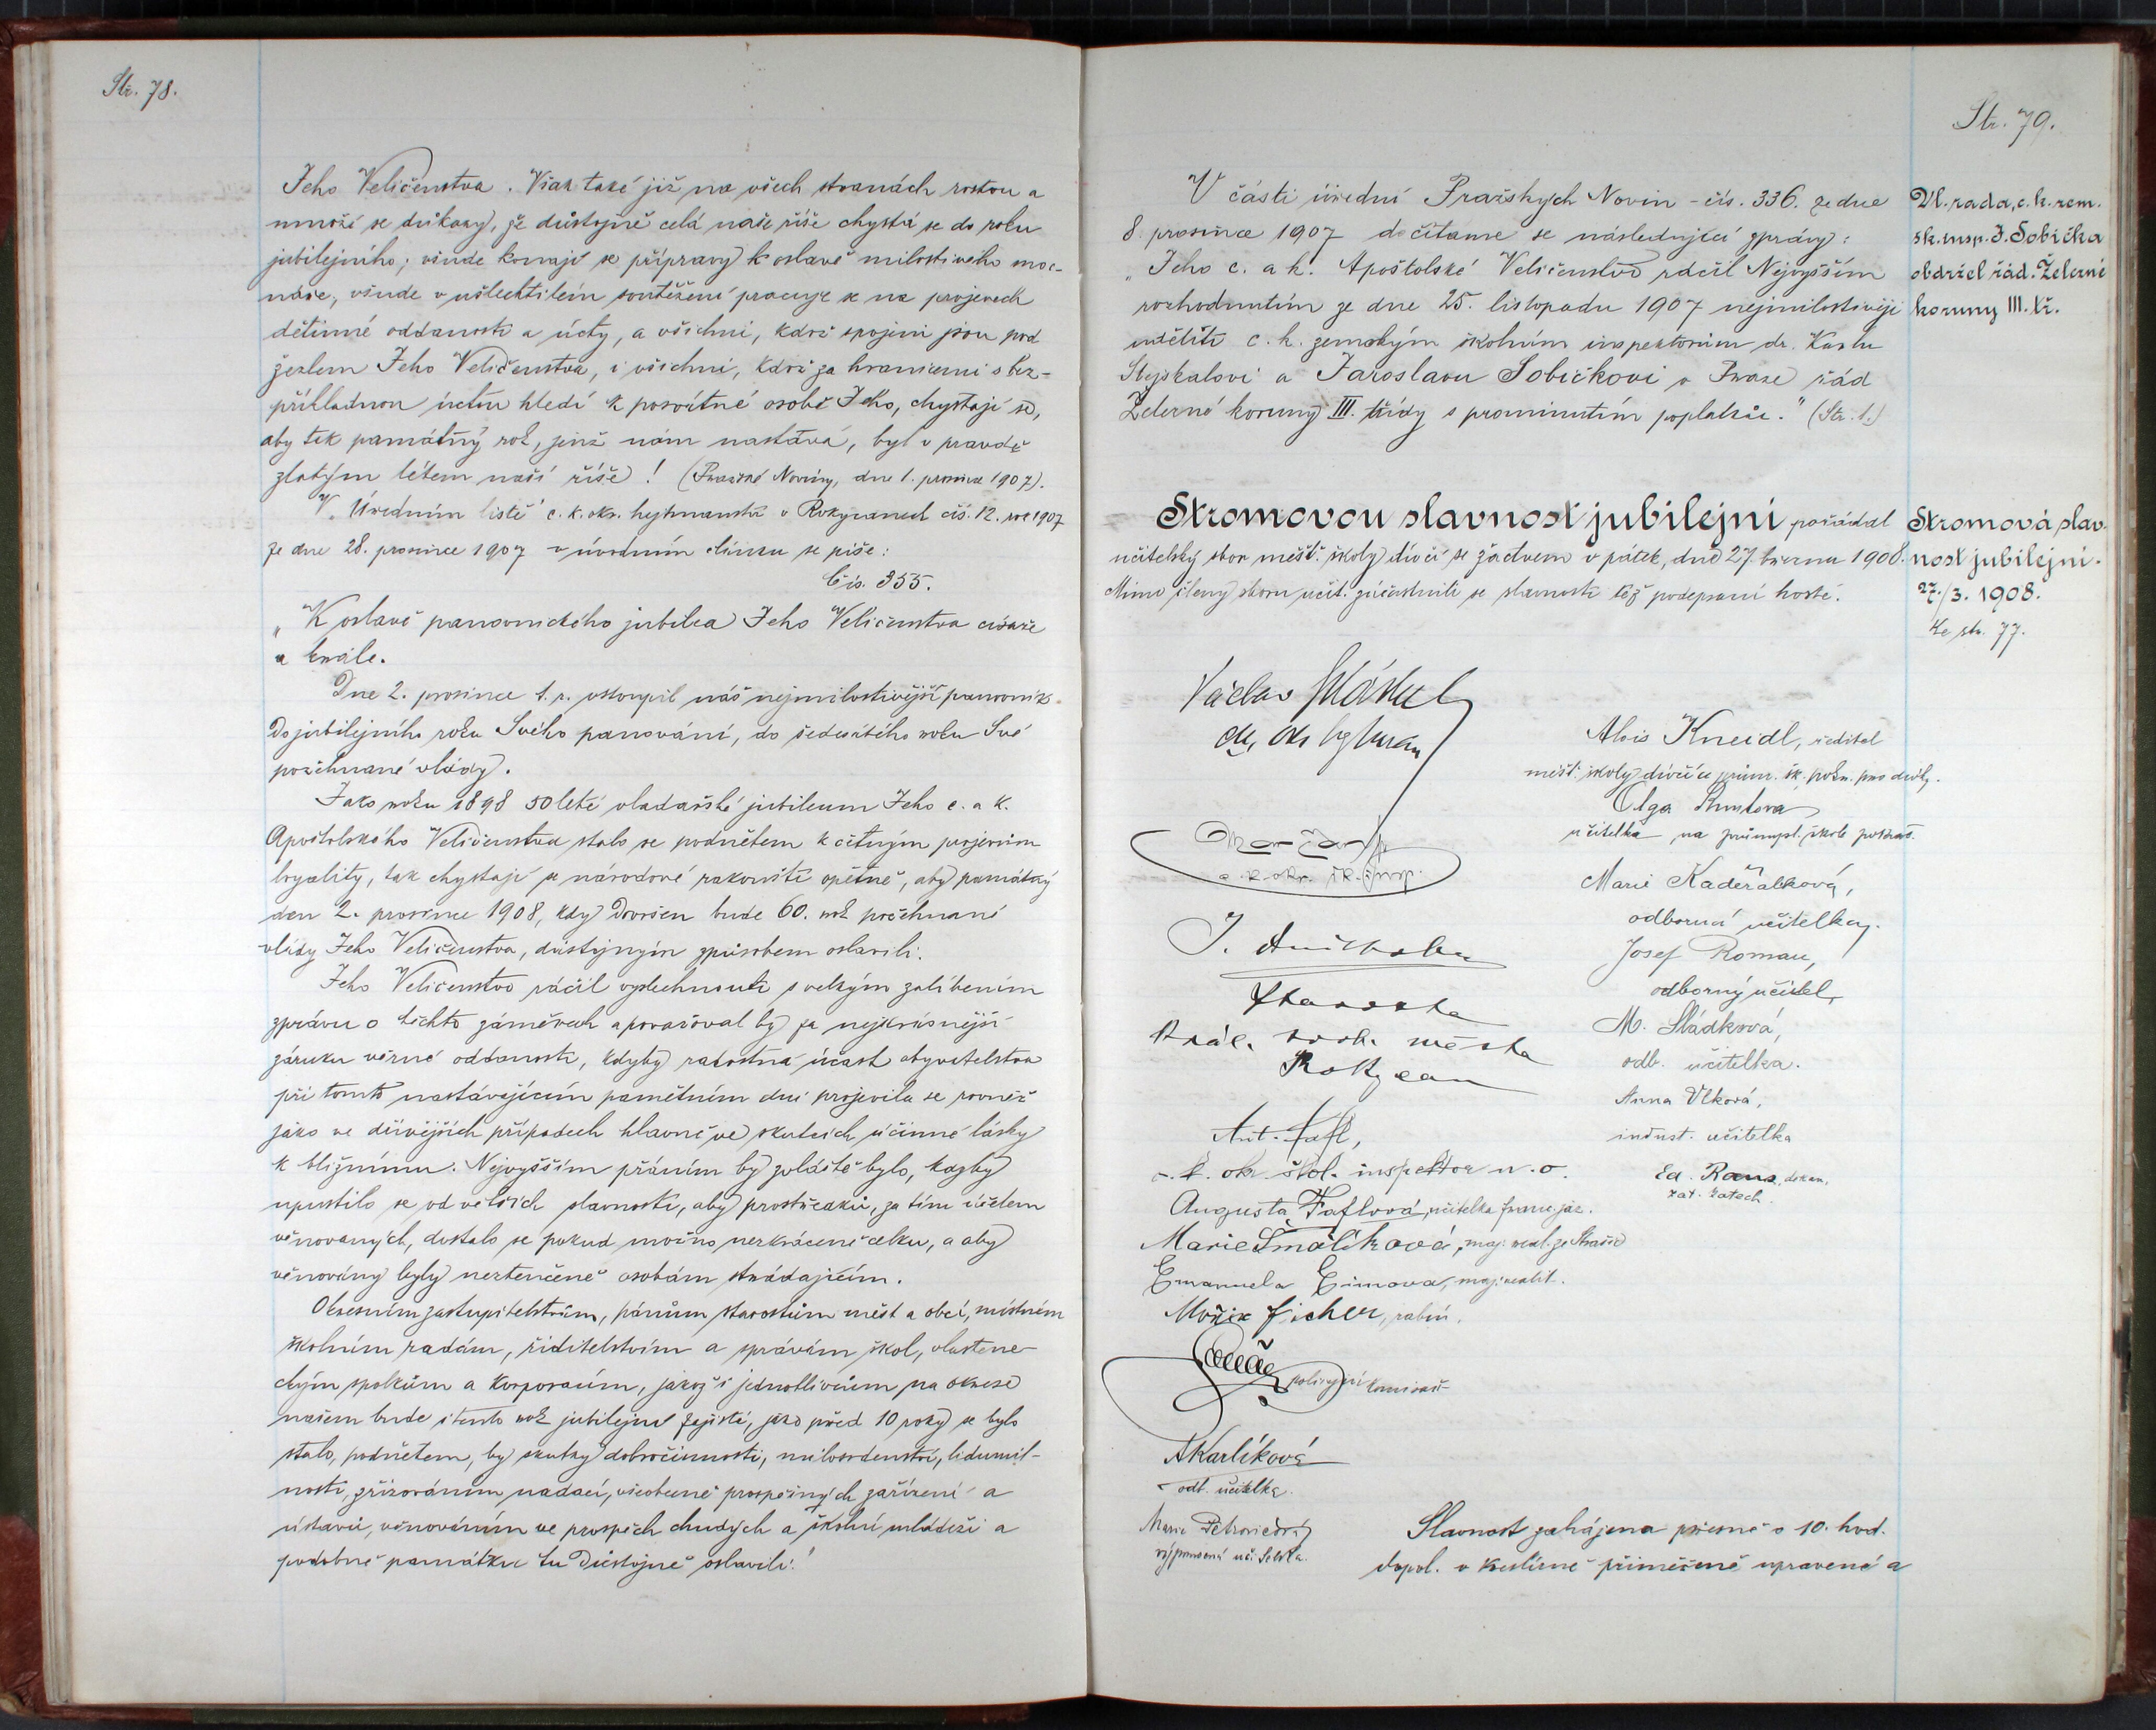 Str. 78.
Jeho Veličenstva. Však také již na všech stranách rostou a
množí se důkazy, že důstojně celá naše říše chystá se do roku
jubilejního; všude konají se přípravy k oslavě milostivého moc-
náře, všude v ušlechtilém soutěžení pracuje se na projevech
dětinné oddanosti a úcty, a všichni, kdož spojeni jsou pod
žezlem Jeho Veličenstva, i všichni, kdož za hranicemi s bez-
příkladnou úctou hledí k posvátné osobě Jeho, chystají se,
aby tak památný rok, jenž nám nastává, byl v pravdě
zlatým létem naší říše! (Pražské Noviny, dne 1. prosince 1907).
V Úředním listě c. k. okr. hejtmanství v Rokycanech čís. 12. roč 1907
ze dne 28. prosince 1907 v úvodním článku se píše:
Čís. 355.
„K oslavě panovnického jubilea Jeho Veličenstva císaře
a krále.
Dne 2. prosince t. r. vstoupil náš nejmilostivější panovník
Do jubilejního roku Svého panování, do šedesátého roku Své
požehnané vlády.
Jako roku 1898 50leté vladařské jubileum Jeho c. a k.
Apoštolského Veličenstva stalo se podnětem k četným projevům
loyality, tak chystají se národové rakouští opětně, aby památný
den 2. prosince 1908, kdy Dovršen bude 60. rok požehnané
vlády Jeho Veličenstva, důstojným způsobem oslavili.
Jeho Veličenstvo ráčil vyslechnouti s velkým zalíbením
zprávu o těchto záměrech a považoval by za nejkrásnější
záruku věrné oddanosti, kdyby radostná účast obyvatelstva
při tomto nastávajícím pamětním dni projevila se rovněž
jako ve dřívějších případech hlavně ve skutcích účinné lásky
k bližnímu. Nejvyšším přáním by zvláště bylo, kdyby
upustilo se od větších slavností, aby prostředků, za tím účelem
věnovaných, dostalo se pokud možno nezkráceně celku, a aby
věnovány byly neztenčeně osobám strádajícím.
Okresním zastupitelstvům, pánům starostům měst a obcí, místním
školním radám, řiditelstvím a správám škol, vlastene-
ckým spolkům a korporacím, jakož i jednotlivcům na okrese
našem bude i tento rok jubilejní zajisté, jako před 10 roky se bylo
stalo, podnětem, by skutky dobročinnosti, milosrdenství, lidumil-
nosti, zřizováním nadací, všeobecně prospěšných zařízení a
ústavů, věnováním ve prospěch chudých a školní mládeže a
podobně památku tu Důstojně oslavili.“
Str. 79.
V části úřední Pražských Novin - čís. 336. ze dne
8. prosince 1907 dočítáme se následující zprávy:
„Jeho c. a k. Apoštolské Veličenstvo ráčil Nejvyšším
rozhodnutím ze dne 25. listopadu 1907 nejmilostivěji
uděliti c. k. zemským školním inspektorům dr. Karlu
Stejskalovi a Jaroslavu Sobičkovi v Praze řád
Železné koruny III. třídy s prominutím poplatků.“ (Str. 1.)
Vl. rada, c. k. zem.
šk. insp. J. Sobička
obdržel řád. Železné
koruny III. tř.
Stromovou slavnost jubilejní pořádal
učitelský sbor měšť. školy dívčí se žactvem v pátek, dne 27. března 1908.
Mimo členy sboru učit. zúčastnili se slavnosti též podepsaní hosté.
Stromová slav-
nost jubilejní.
27./3. 1908.
Ke str. 77.
Václav
c. k. okr. šk. insp.
Starosta
král. horn. města
Rokycan
Ant. Tafl,
c. k. okr. škol. inspektor n. o.
Augusta Taflová, učitelka franc. jaz.
Marie Smolíková, maj. real. ze Strašic
Emanuela Eimová, maj. realit.
Mořic Ficher, rabín.
policejní komisař
A Karlíková
odb. učitelka.
Marie Petrovická
Alois Kneidl, ředitel
měšť. školy dívčí a prům. šk. pokr. pro dívky.
Olga
učitelka na průmysl. škole pokrač.
Marie Kadeřábková,
odborná učitelka.
Josef Roman,
odborný učitel,
M. Sládková,
odb. učitelka.
Anna Vlková,
indust. učitelka
Ed. Rous, dekan,
kat. katech.
Slavnost zahájena přesně o 10. hod.
dopol. v kreslírně přiměřeně upravené a